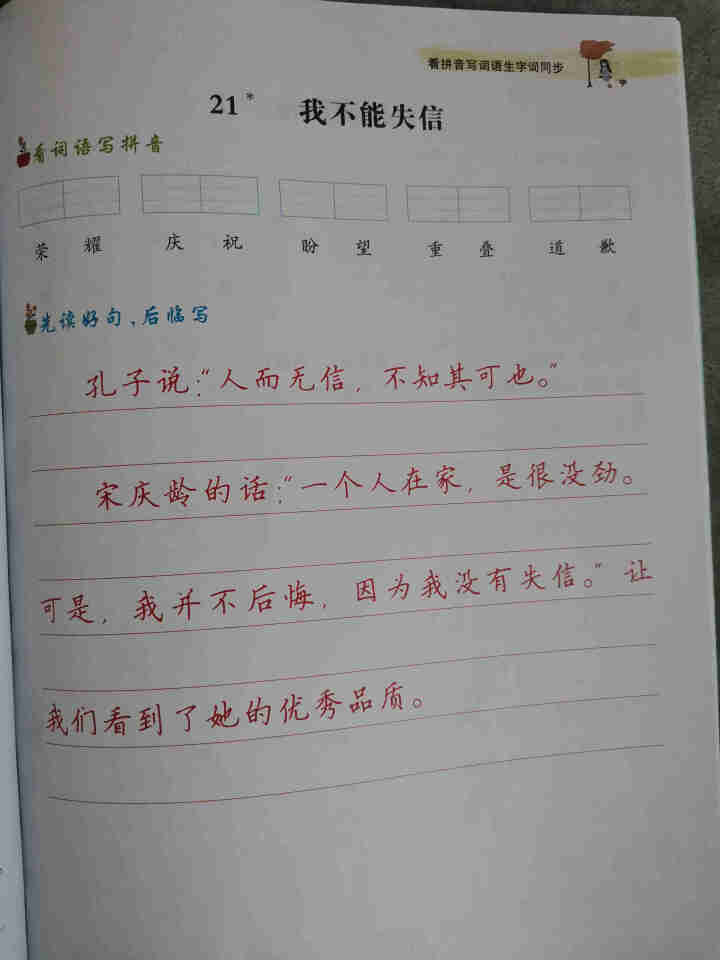 看拼音写词语生字词同步
21* 我不能失信
看词语写拼音
荣 耀 庆 祝 盼 望 重 叠 道 歉
先读好句,后临写
孔子说:“人而无信,不知其可也。”
宋庆龄的话:“一个人在家,是很没劲。
可是,我并不后悔,因为我没有失信。”让
我们看到了她的优秀品质。